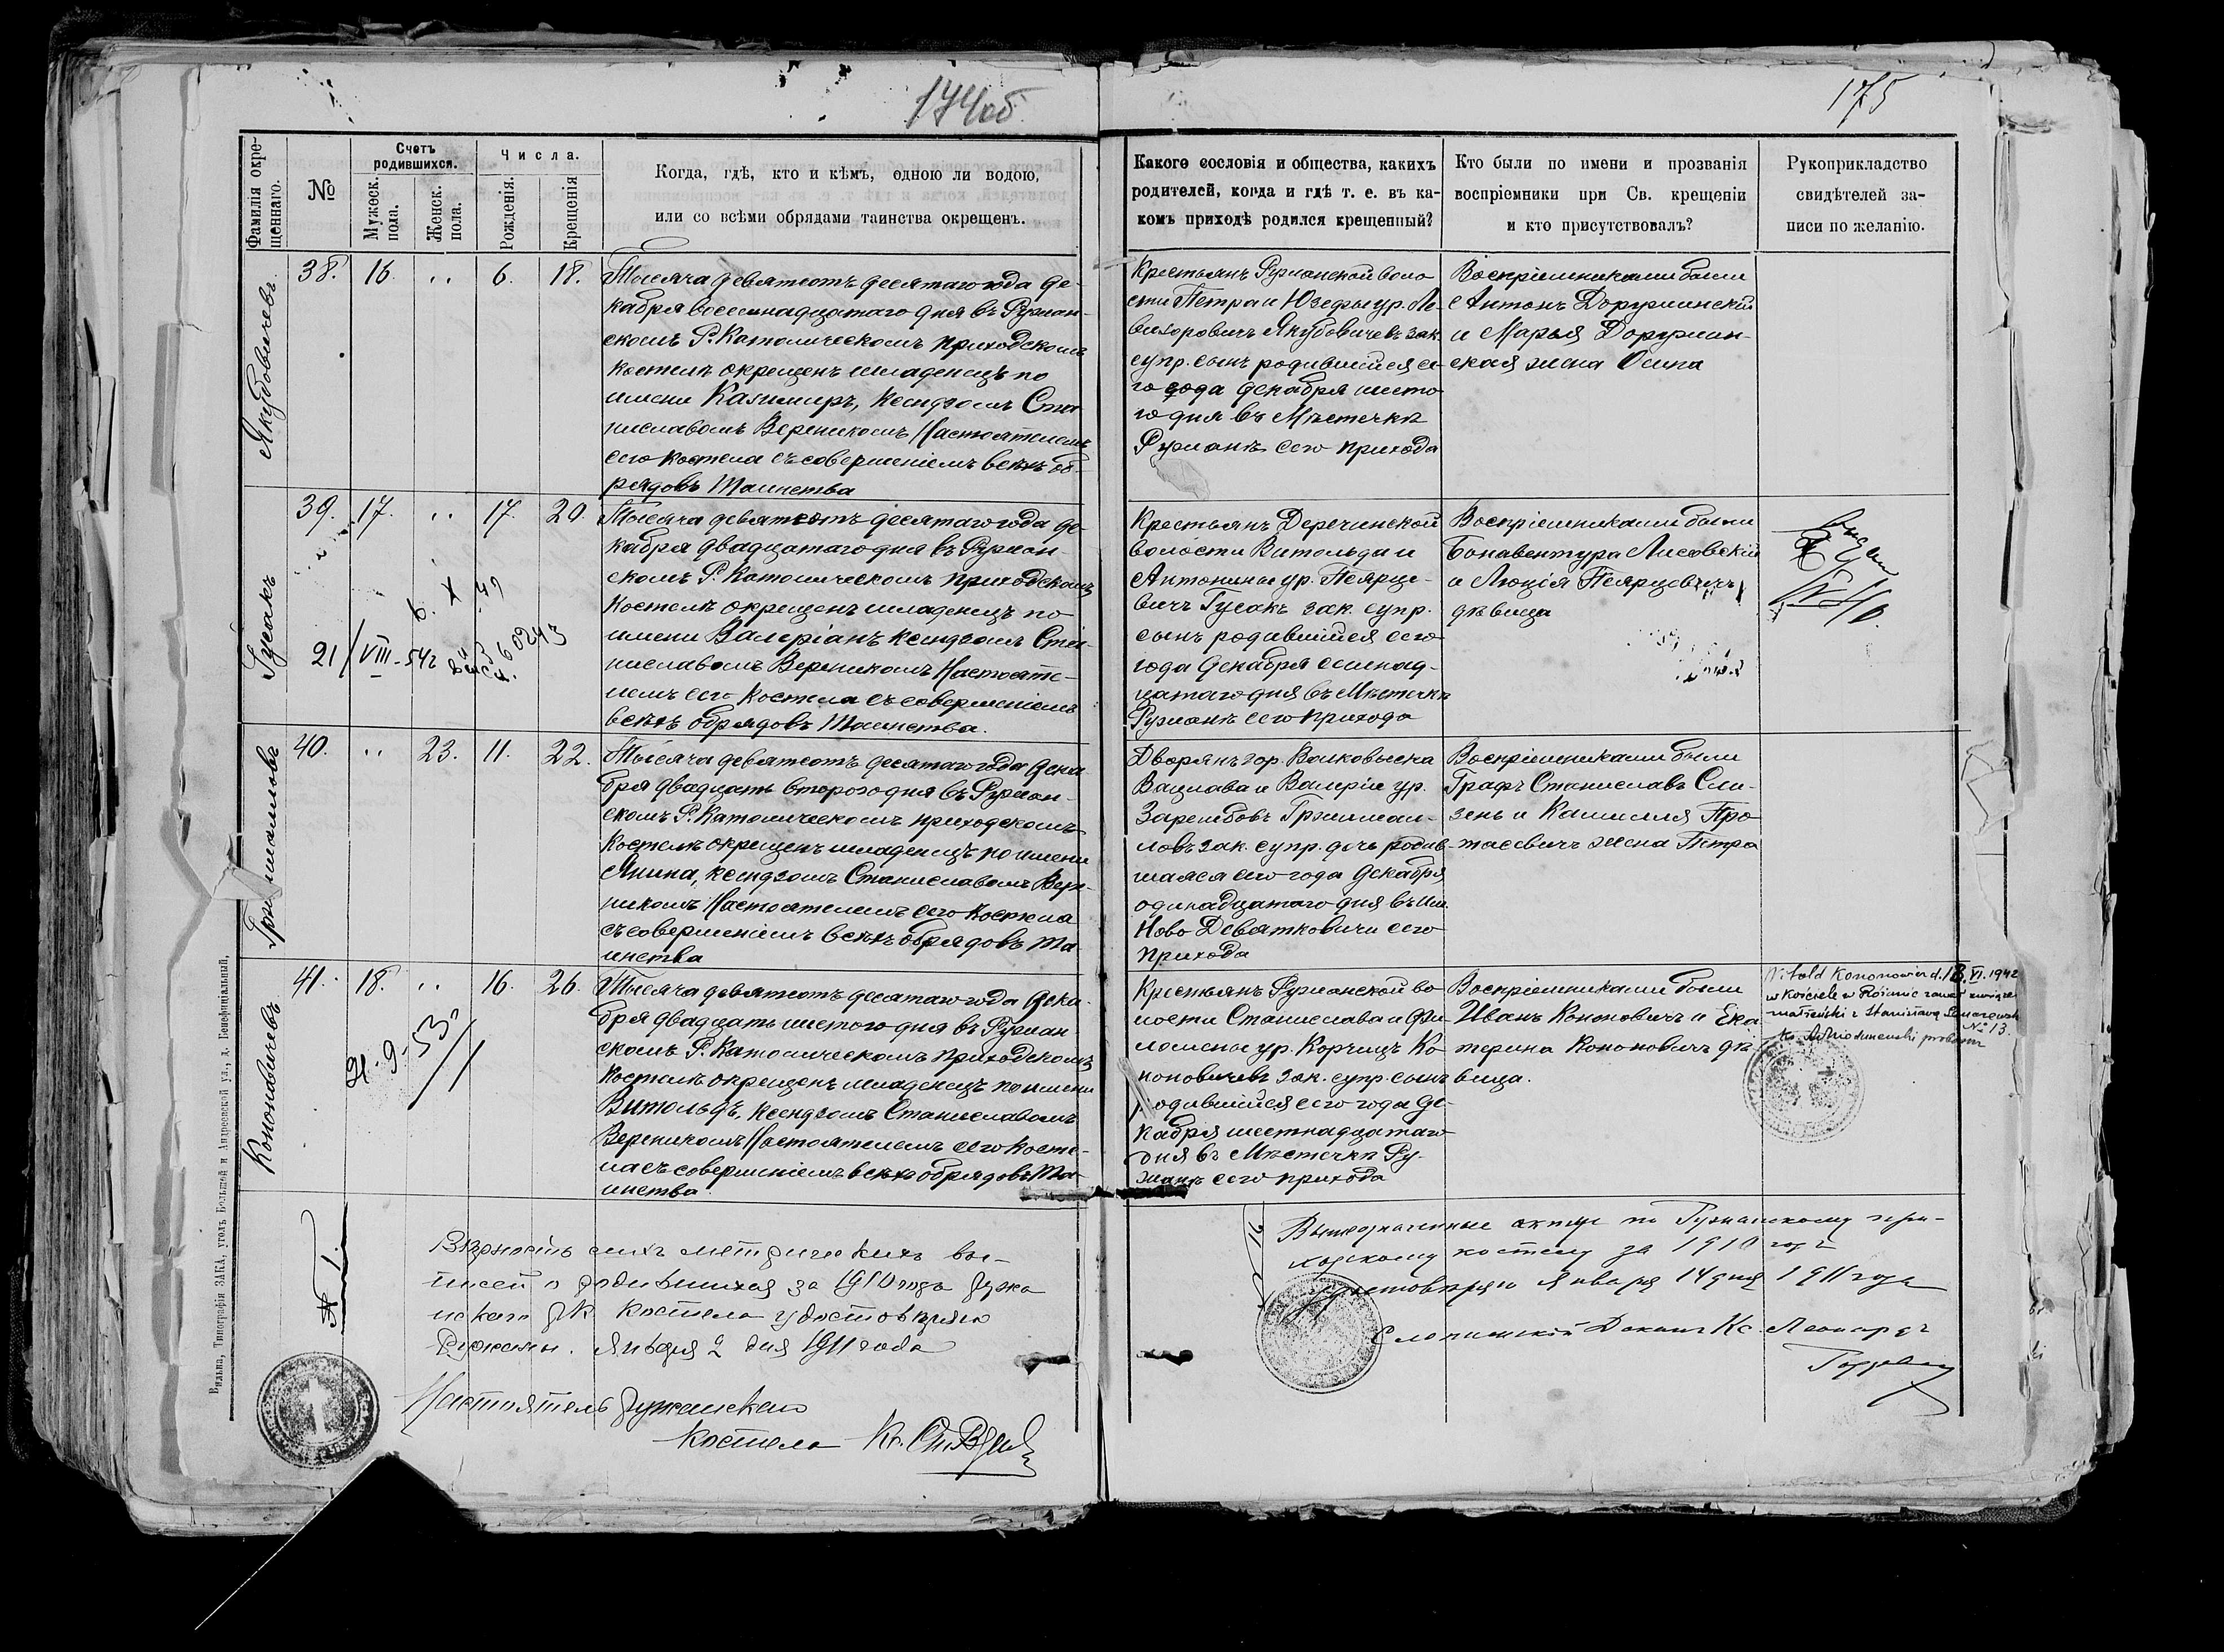 174об.
175
Фамилія окре-
щеннаго.
№
Счетъ
родившихся.
Мужеск.
пола.
Женск.
пола.
Числа.
Рожденія.
Крещенія
Когда, гдѣ, кто и кѣмъ, одною ли водою,
или со всѣми обрядами таинства окрещенъ.
Какого сословія и общества, какихъ
родителей, когда и гдѣ т. е. въ ка-
комъ приходѣ родился крещенный?
Кто были по имени и прозванія
воспріемники при Св. крещеніи
и кто присутствовалъ?
Рукоприкладство
свидѣтелей за-
писи по желанію.
Якубовичевъ
38. 16. .. 6. 18.
Тысяча девятсотъ десятаго года де-
кабря восемнадцатаго дня въ Ружан-
скомъ Р. Католическомъ приходскомъ
костелѣ окрещенъ младенецъ по
имени Казимиръ, ксендзомъ Ста-
ниславомъ Вереникомъ Настоятелемъ
сего костела съ совершеніемъ всѣхъ об-
рядовъ Таинства
Крестьянъ Ружанской воло
сти Петра и Юзефы ур. Ле-
викоровичъ Якубовичевъ зак.
супр. сынъ родившійся се-
го года декабря шесто
го дня въ Мѣстечкѣ
Ружанѣ сего прихода
Воспріемниками были
Антонъ Доружинскій
и Марья Доружин-
ская жена Осипа
Гусакъ
39. 17. .. 17. 20.
6. X .49
21/VIII-54г
Тысяча девятсотъ десятаго года де
кабря двадцатаго дня въ Ружан-
скомъ Р. Католическомъ приходскомъ
костелѣ окрещенъ младенецъ по
имени Валеріанъ ксендзомъ Ста-
ниславомъ Вереникомъ Настояте-
лемъ сего костела съ совершеніемъ
всѣхъ обрядовъ Таинства.
Крестьянъ Деречинской
волости Витольда и
Антонины ур. Пеярце-
вичъ Гусакъ зак. супр.
сынъ родившійся сего
года декабря семнад-
цатаго дня въ Мѣстечкѣ
Ружанѣ сего прихода
Воспріемниками были
Бонавентура Лисовскій
и Люція Пеярцевичъ
дѣвица
40. .. 23. 11. 22.
Тысяча девятсотъ десятаго года дека
бря двадцать второго дня въ Ружан-
скомъ Р. Католическомъ приходскомъ
костелѣ окрещенъ младенецъ по имени
Янина, ксендзомъ Станиславомъ Вере-
никомъ Настоятелемъ сего костела
съ совершеніемъ всѣхъ обрядовъ Та
инства
Дворянъ гор. Волковыска
Вацлава и Валеріи ур.
Зарембовъ Гржимал-
ловъ зак. супр. дочь родив-
шаяся сего года декабря
одинадцатаго дня въ им.
Ново Девятковичи сего
прихода
Воспріемниками были
Графъ Станиславъ Сли-
зень и Камиллия Про
тасевичъ жена Петра
Кононовичевъ
41. 18. .. 16. 26.
Тысяча девятсотъ десятаго года дека-
бря двадцать шестого дня въ Ружан-
скомъ Р. Католическомъ приходскомъ
костелѣ окрещенъ младенецъ по имени
Витольдъ, ксендзомъ Станиславомъ
Вереникомъ Настоятелемъ сего косте-
ла съ совершеніемъ всѣхъ обрядовъ Та-
инства
Крестьянъ Ружанской во
лости Станислава и Фи-
ломены ур. Корчицъ Ко
ноновичевъ зак. супр. сынъ
родившійся сего года де-
кабря шестнадцатаго
дня въ Мѣстечкѣ Ру-
жанѣ сего прихода
Воспріемниками были
Иванъ Кононовичъ и Ека
терина Кононовичъ дѣ-
вица.
Witold Kononowicz d. 18.VI.1942
w kościele w Różanie zawarł związek
małżeński z Stanisławą
№ 13.
Вѣрность сихъ метрическихъ вы-
писей о родившихся за 1910 годъ Ружа
нскаго РК костела удостовѣряю
Ружаны. Января 2 дня 1911 года
Настоятель Ружанскаго
костела Кс. Ст.
Вышеозначенные акты по Ружанскому при-
ходскому костелу за 1910 годъ
удостовѣряю Января 14 дня 1911 года
Слонимскій Деканъ Кс. Леонардъ
Вильна, Типографія ЗАКА, уголъ Большой и Андреевской ул., д. Бонефиціальный.